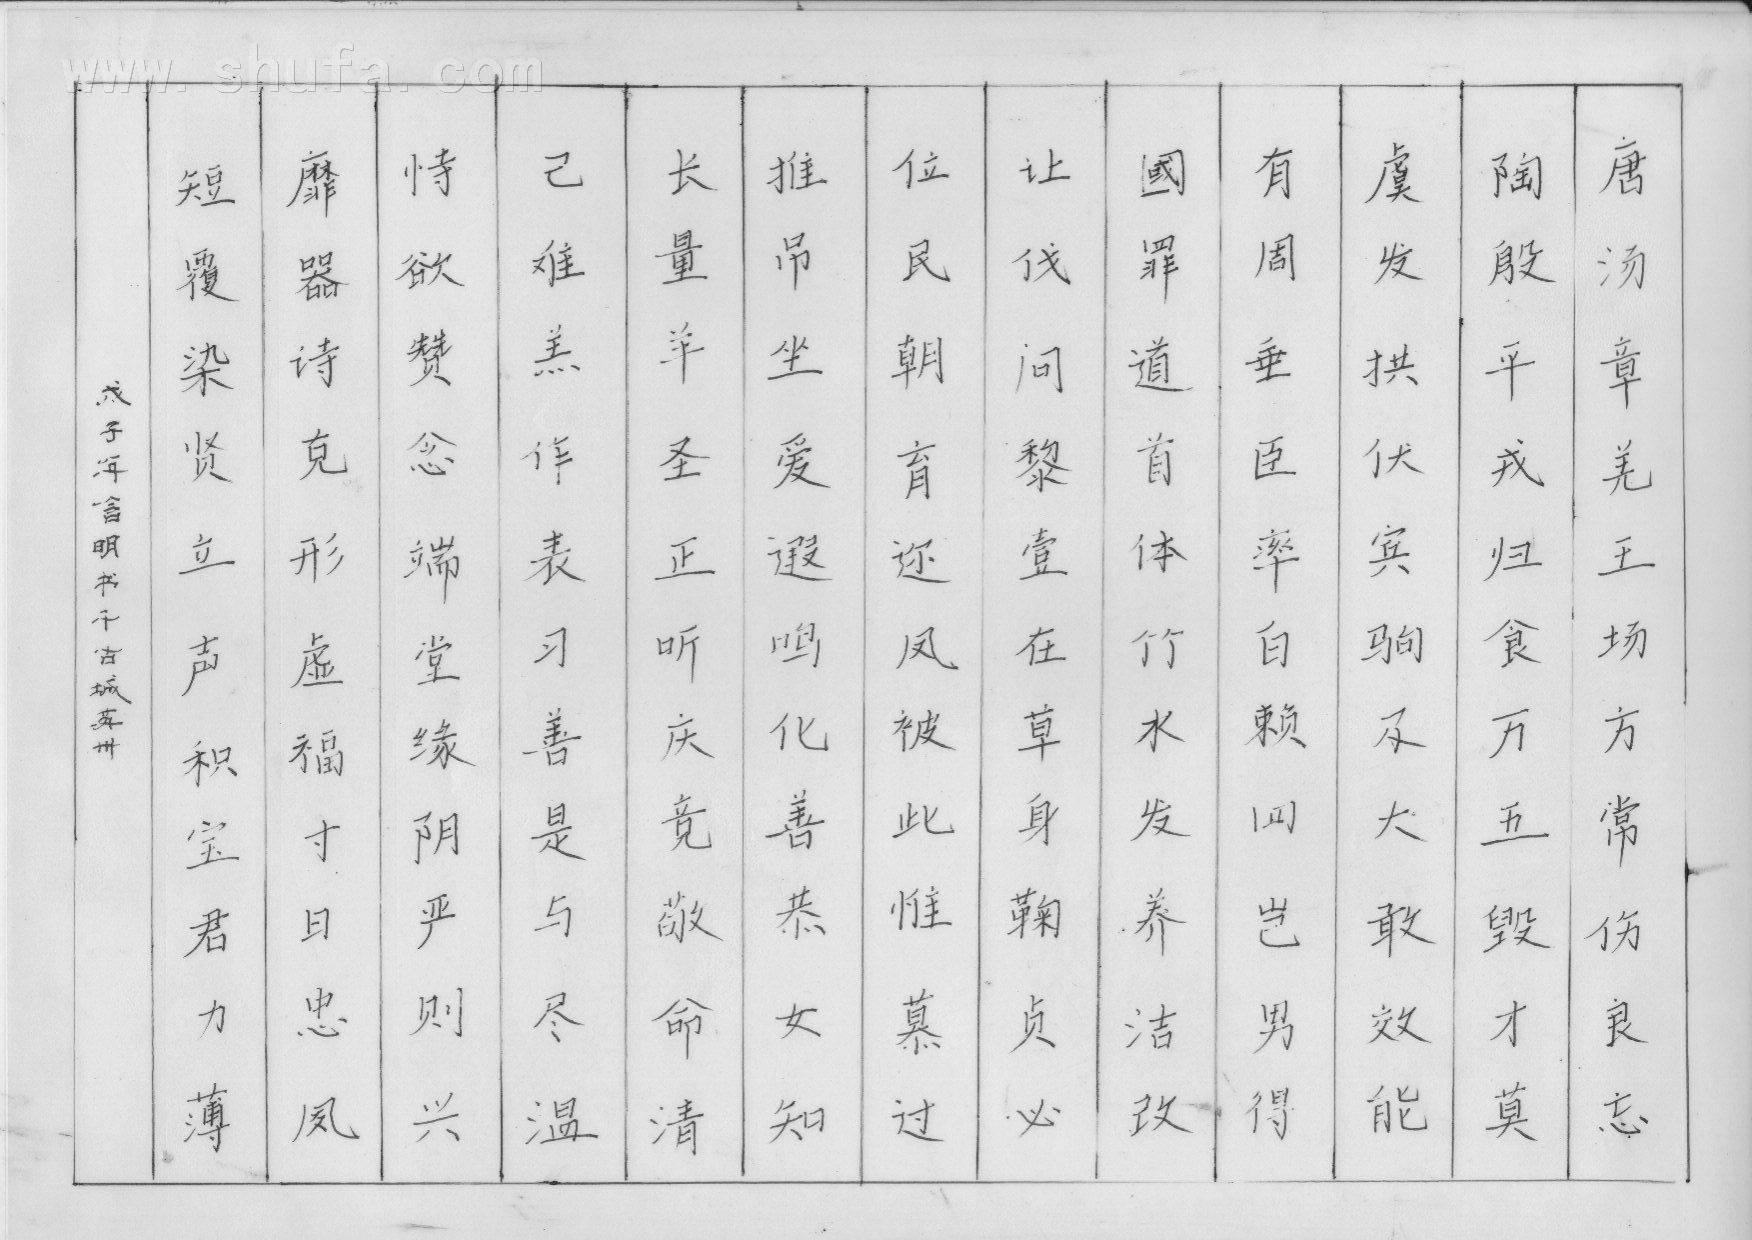 www.shufa.com
唐汤章羌王场方常伤良忘
陶殷平戎归食万五毁才莫
虞发拱伏宾驹及大敢效能
有周垂臣率白赖四岂男得
國罪道首体竹水发养洁改
让伐问黎壹在草身鞠贞必
位民朝育迩凤被此惟慕过
推吊坐爱遐鸣化善恭女知
长量羊圣正听庆竞敬命清
己难羔作表习善是与尽温
恃欲赞念端堂缘阴严则兴
靡器诗克形虚福寸日忠夙
短覆染贤立声积宝君力薄
戊子明书于古城苏州